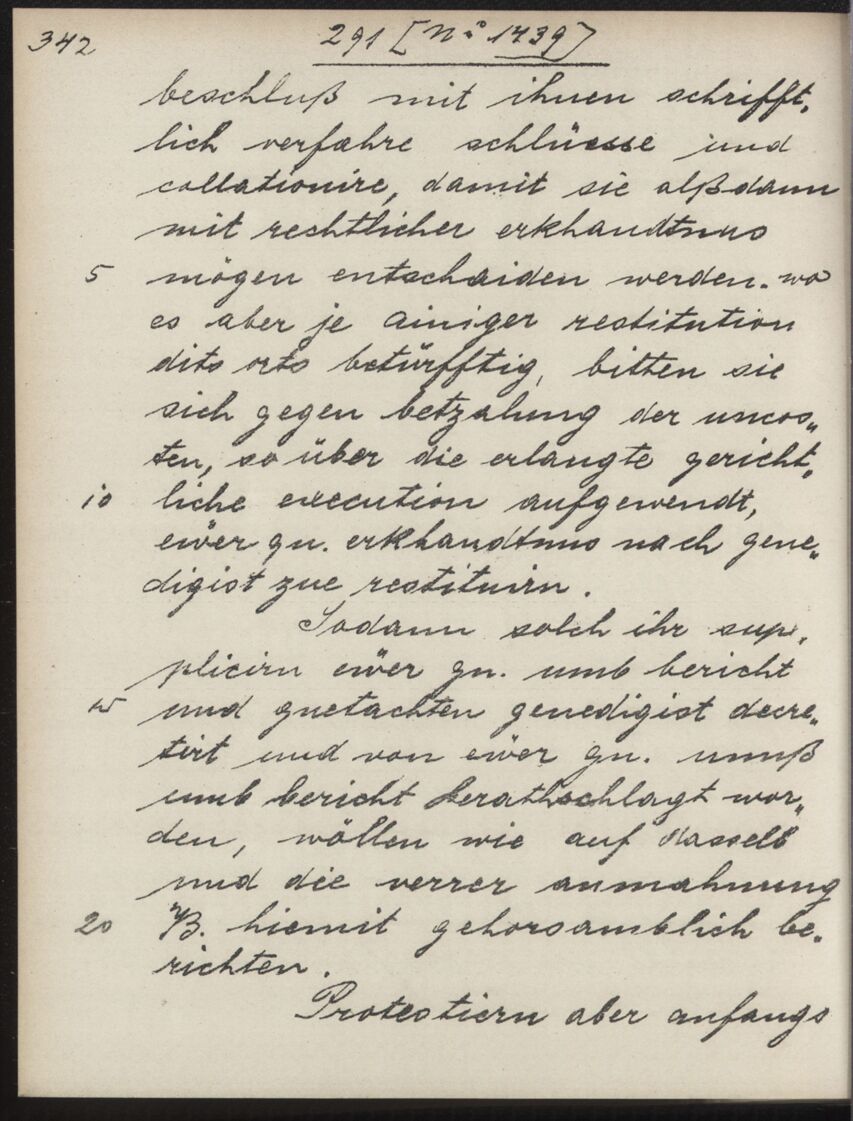 342
291 [No 1439]
beschluß mit ihnen schrifft„
lich verfahre schlüesse und
collationire, damit sie alßdann
mit rechtlicher erkhandtnus
5 mögen entschaiden werden. wo
es aber je ainiger restitution
dits orts betürfftig, bitten sie
sich gegen betzalung der uncos„
ten, so über die erlangte gericht„
10 liche execution aufgewendt,
ewer gn. erkhandtnus nach gene„
digist zue restituirn.
Sodann solch ihr sup„
plicirn ewer gn. umb bericht
15 und guetachten genedigist decre„
tirt und von ewer gn. unnß
umb bericht berathschlagt wor„
den, wöllen wie auf dasselb
und die verrer anmahnung
20 B. hiemit gehorsamblich be„
richten.
Protestiern aber anfangs